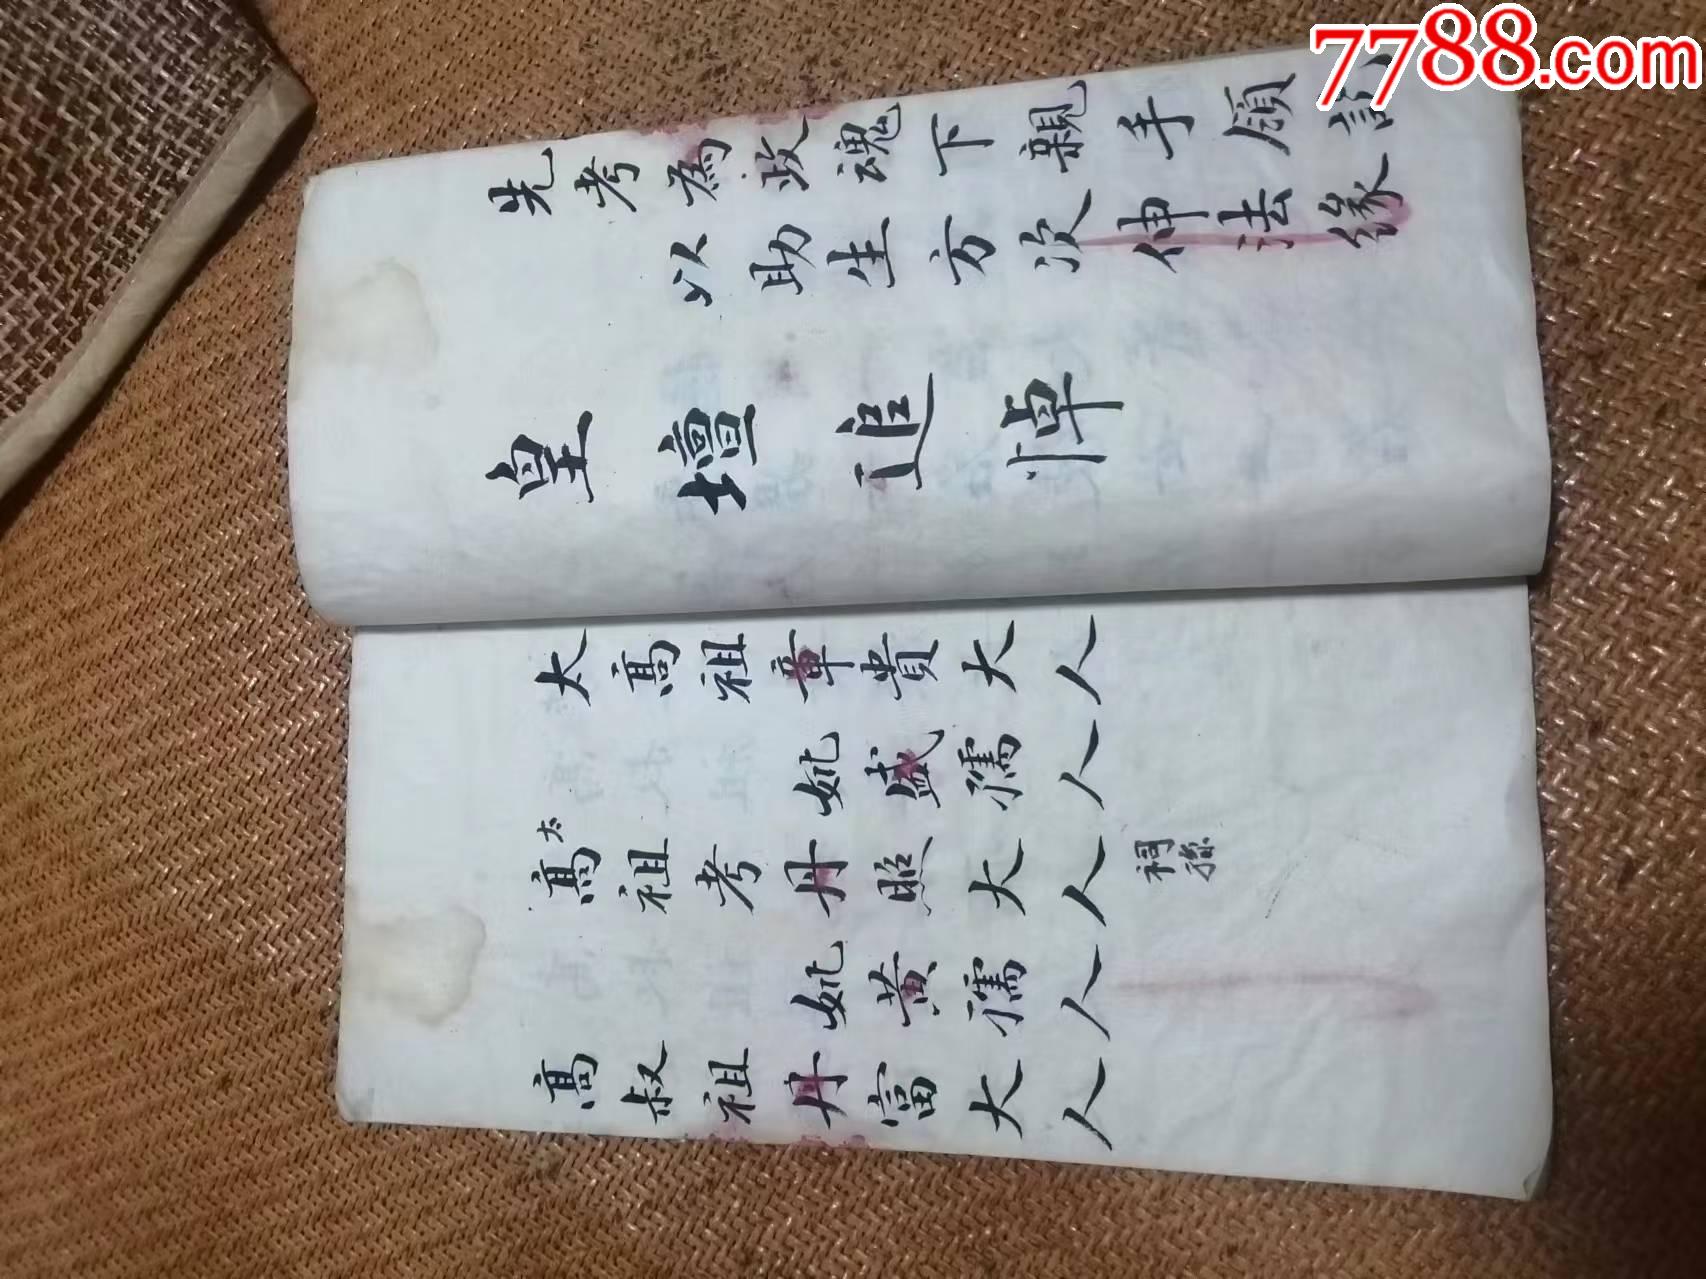 先考為政魂下親手領
以助生方次伸法緣
皇壇追悼
太高祖章貴大人
妣盛孺人
太
高祖考丹照大人
妣黃孺人
高叔祖丹富大人
祠孫
7788.com